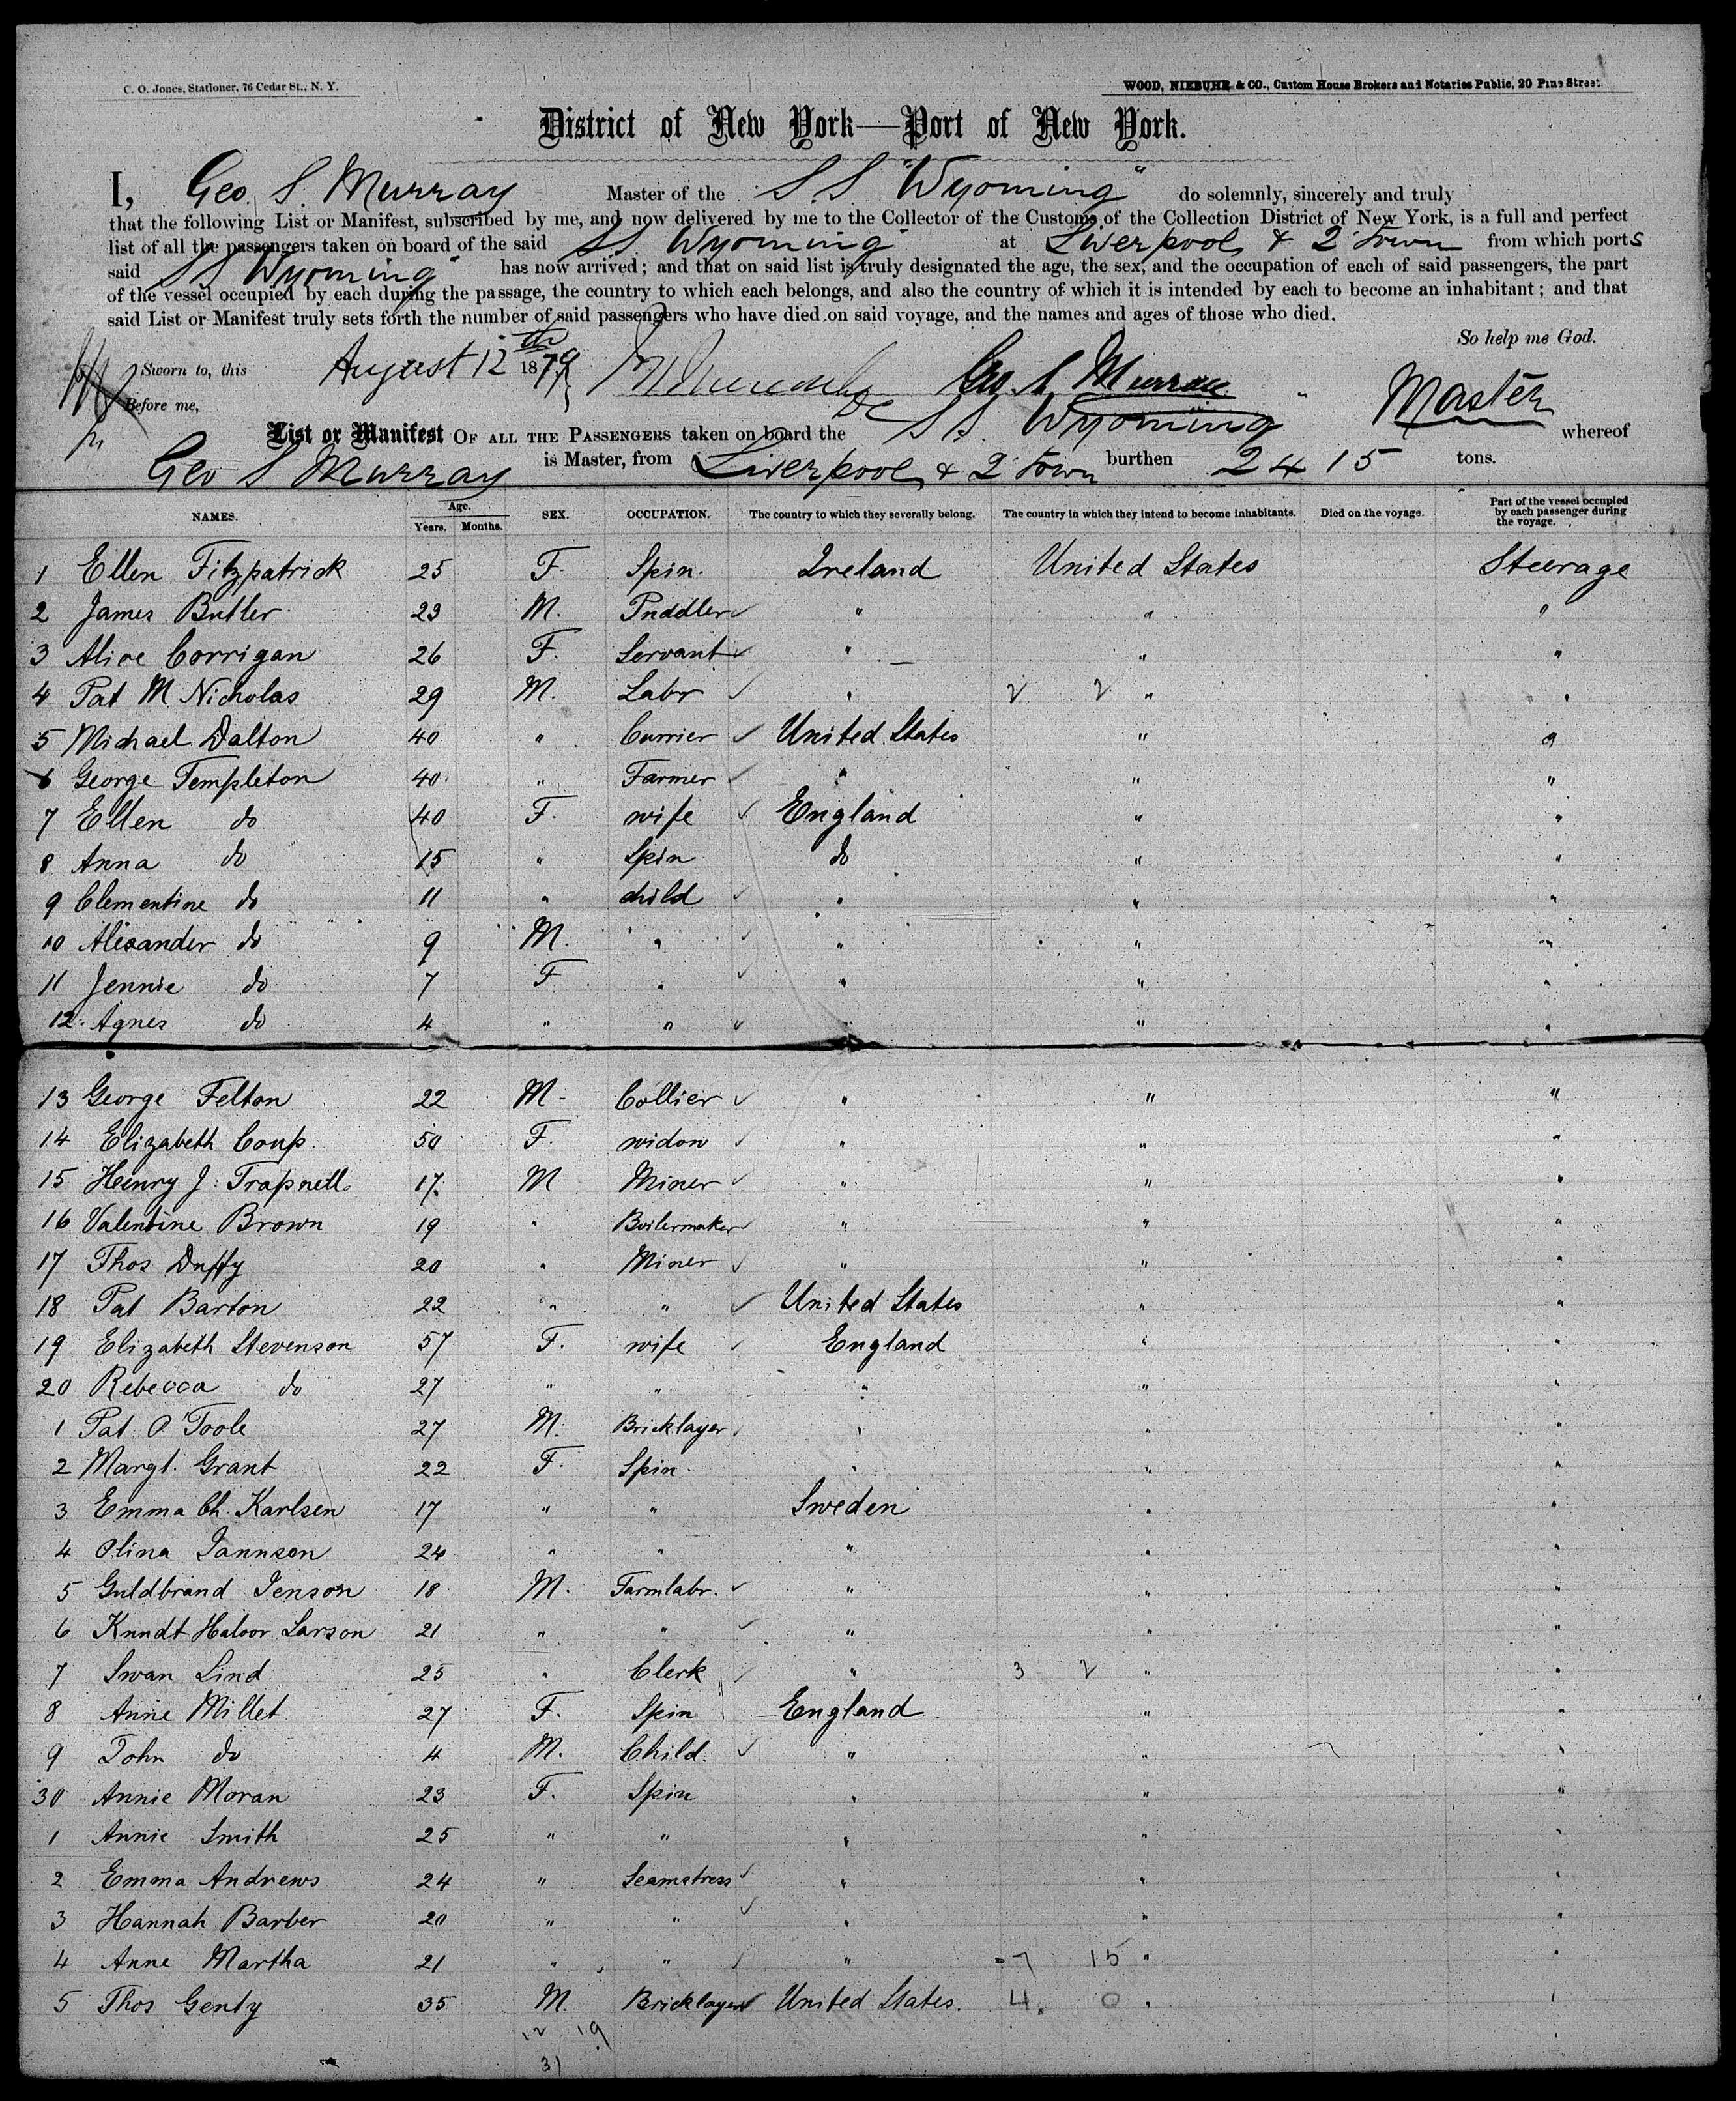 C. O. Jones, Stationer, 76 Cedar St., N. Y.
WOOD, NIEBUHR & CO., Custom House Brokers and Notaries Public, 20 Pine Street.
District of New York—Port of New York.
I, Geo. S. Murray Master of the S.S. "Wyoming" do solemnly, sincerely and truly
that the following List or Manifest, subscribed by me, and now delivered by me to the Collector of the Customs of the Collection District of New York, is a full and perfect
list of all the passengers taken on board of the said SS. Wyoming at Liverpool & Q Town from which ports
said SS Wyoming" has now arrived; and that on said list is truly designated the age, the sex, and the occupation of each of said passengers, the part
of the vessel occupied by each during the passage, the country to which each belongs, and also the country of which it is intended by each to become an inhabitant; and that
said List or Manifest truly sets forth the number of said passengers who have died on said voyage, and the names and ages of those who died.
So help me God.
Sworn to, this August 12th 1879 Geo. S. Murray Master
Before me,
List or Manifest OF ALL THE PASSENGERS taken on board the SS. Wyoming whereof
Geo S Murray is Master, from Liverpool & Q Town burthen 2415 tons.
NAMES. Age. Years. Months. SEX. OCCUPATION. The country to which they severally belong. The country in which they intend to become inhabitants. Died on the voyage. Part of the vessel occupied by each passenger during the voyage.
1 Ellen Fitzpatrick 25 F. Spin. Ireland United States Steerage
2 James Butler 23 M. Puddler " " "
3 Alice Corrigan 26 F. Servant " " "
4 Pat McNicholas 29 M. Labr " 2 2 " "
5 Michael Dalton 40 " Currier United States " "
6 George Templeton 40 " Farmer " " "
7 Ellen do 40 F. wife England " "
8 Anna do 15 " Spin do " "
9 Clementine do 11 " child " " "
10 Alexander do 9 M. " " " "
11 Jennie do 7 F " " " "
12 Agnes do 4 " " " " "
13 George Felton 22 M Collier " " "
14 Elizabeth Coup. 50 F. widow " " "
15 Henry J. Trapnell 17 M Miner " " "
16 Valentine Brown 19 " Boilermaker " " "
17 Thos Duffy 20 " Miner " " "
18 Pat Barton 22 " " United States " "
19 Elizabeth Stevenson 57 F. wife England " "
20 Rebecca do 27 " " " " "
1 Pat O'Toole 27 M. Bricklayer " " "
2 Margt. Grant 22 F. Spin. " " "
3 Emma Ch. Karlsen 17 " " Sweden " "
4 Olina Jannson 24 " " " " "
5 Guldbrand Jenson 18 M. Farmlabr. " " "
6 Knudt Haloor Larson 21 " " " " "
7 Swan Lind 25 " Clerk " 3 2 " "
8 Anne Millet 27 F. Spin England " "
9 John do 4 M. Child. " " "
30 Annie Moran 23 F. Spin " " "
1 Annie Smith 25 " " " " "
2 Emma Andrews 24 " Seamstress " " "
3 Hannah Barber 20 " " " " "
4 Anne Martha 21 " " " 7 15 " "
5 Thos Genty 35 M. Bricklayer United States. 4. 0 " "
12 19
31